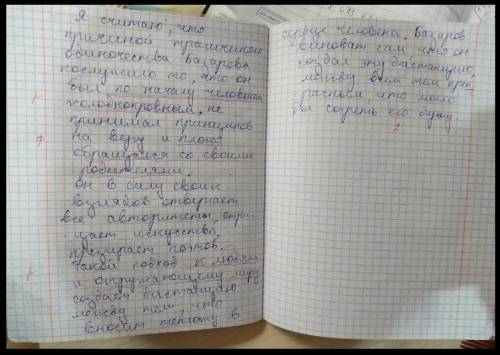 Я считаю, что
причиной трагичного
одиночества Базарова
послужило то, что он
был по началу человеком
холоснокровным, не
принимал принципов
на веру и плохо
обращался со своими
родителями.
Он в силу своих
взглядов отвергает
все авторитеты, отри-
цает искусство,
презирает поэтов.
Такой подход к людям
и окружающему миру
создаёт дистанцию
между тем, что
вносит теплоту в
сердце человека. Базаров
виноват сам что он
создал эту дистанцию,
между всем тем прек
расным, что могло
бы согреть его душу.